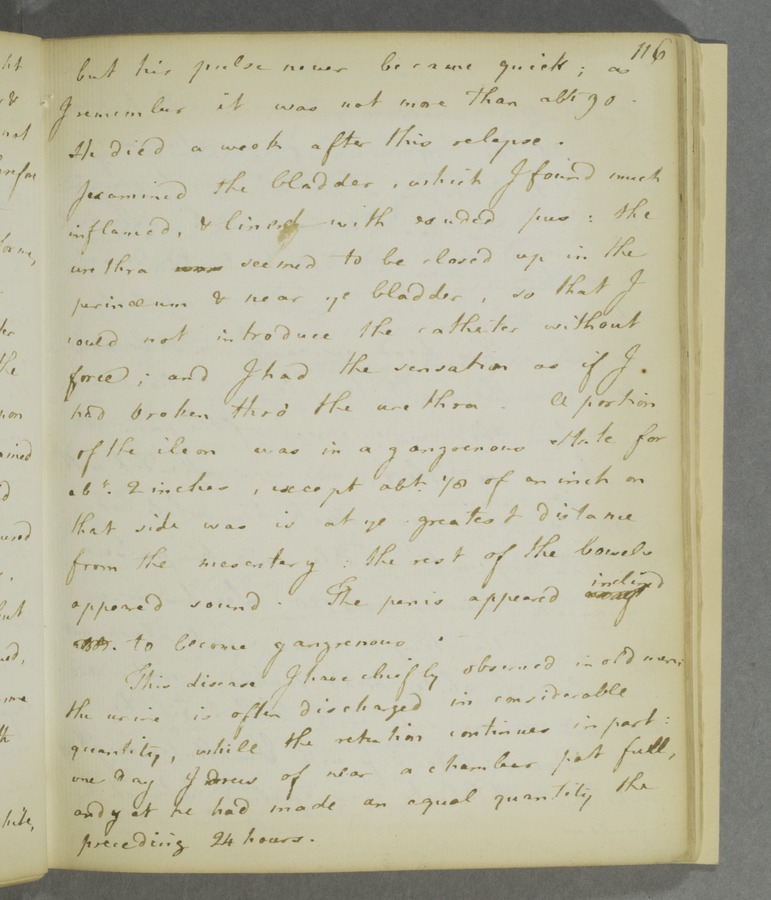 116
but his pulse never became quick; as
I remember it was not more than abt 90.
He died a week after this relapse.
I examined the bladder, which I found much
inflamed, & lined with exuded pus: the
urethra seemed to be closed up in the
perinœum & near ye bladder, so that I
could not introduce the catheter without
force; and I had the sensation as if I
had broken thro' the urethra. A portion
of the ileon was in a gangrenous state for
abt. 2 inches, except abt. 1/8 of an inch on
that side was is at ye greatest distance
from the mesentery: the rest of the bowels
appeared sound. The penis appeared inclined
to become gangrenous.
This disease I have chiefly observed in old men:
the urine is often discharged in considerable
quantity, while the retention continues in part:
one day I drew of near a chamber pot full,
and yet he had made an equal quantity the
preceding 24 hours.